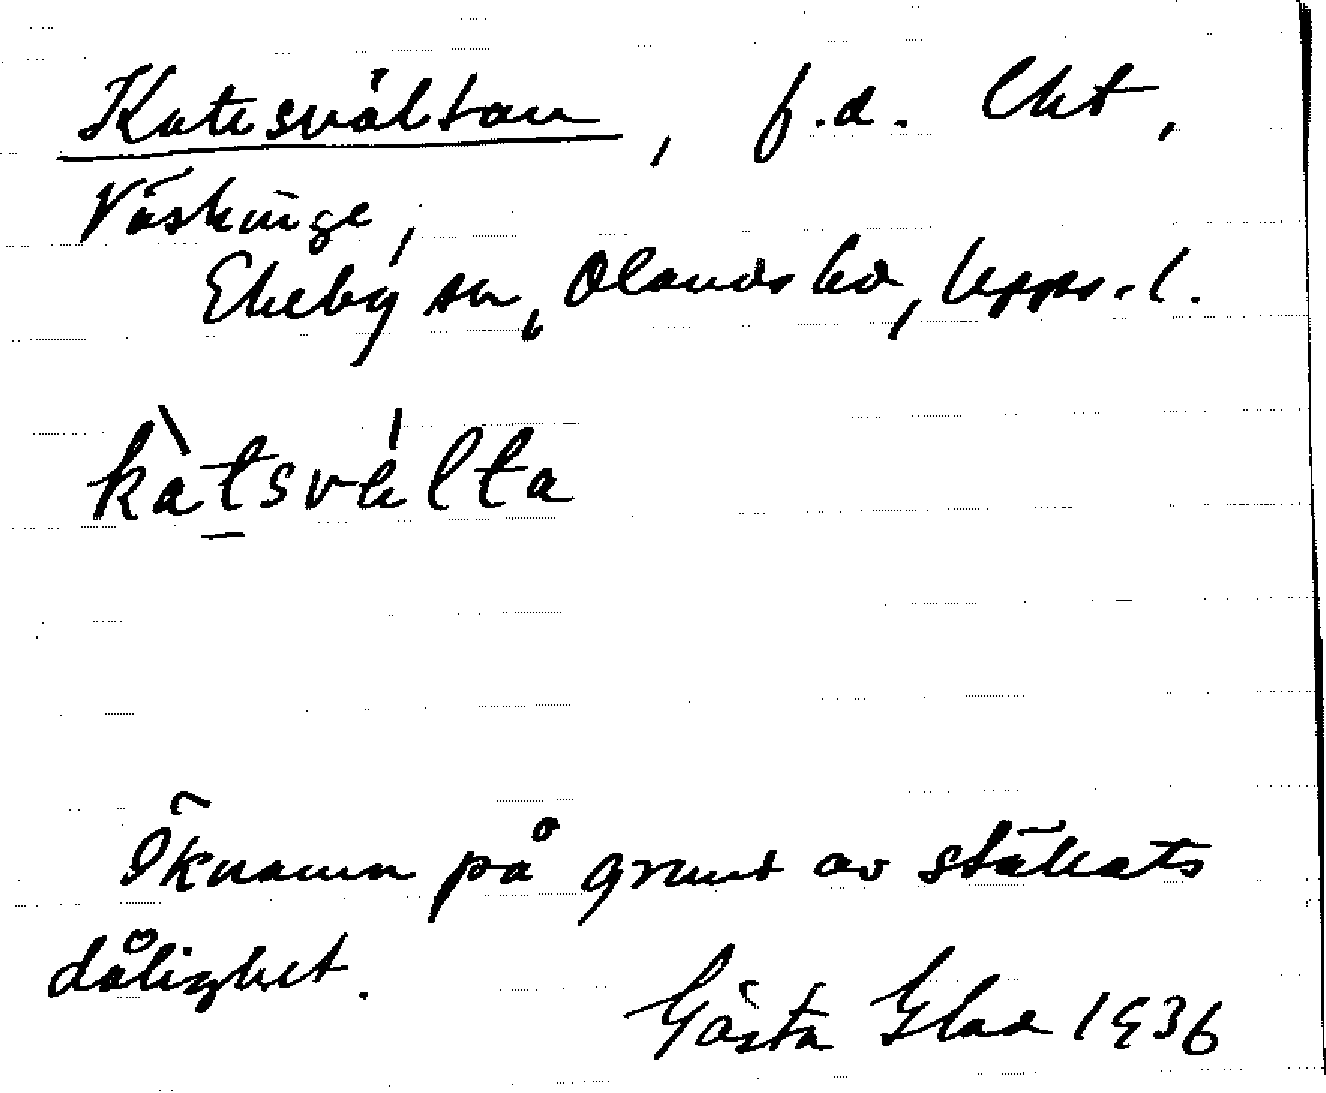 Katesvältan, f.d. lht,
Väskinge,
Ekeby sn, Olands hd, Upps. l.
kàtsvélta
Öknamn på grund av ställets
dålighet.
Gösta Glad 1936